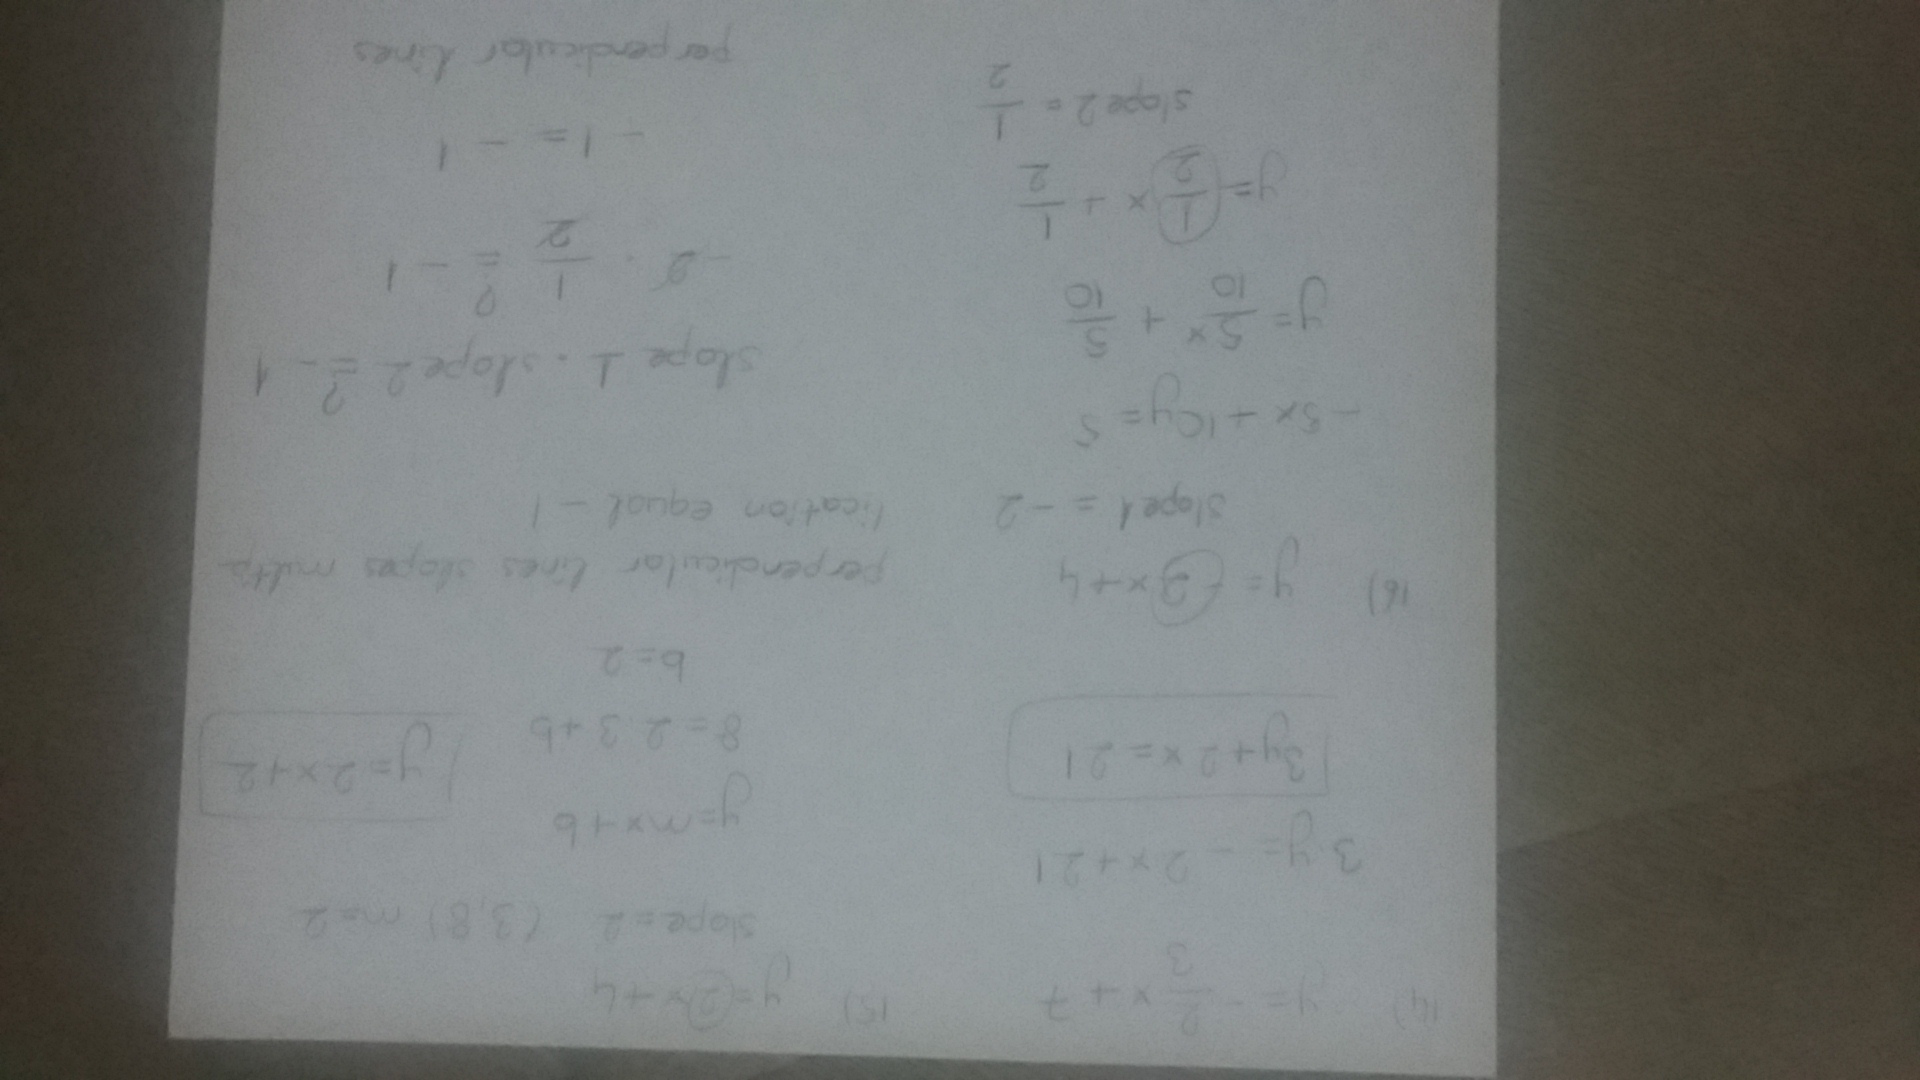 14) y = - 2/3 x + 7
3y = - 2x + 21
3y + 2x = 21
15) y = 2x + 4
slope = 2 (3,8) m = 2
y = mx + b
8 = 2.3 + b
b = 2
y = 2x + 2
16) y = -2x + 4
slope 1 = -2
-5x + 10y = 5
y = 5/10 x + 5/10
y = 1/2 x + 1/2
slope 2 = 1/2
perpendicular lines slopes multip
lication equal - 1
slope 1 . slope 2 =? - 1
-2 . 1/2 =? - 1
- 1 = - 1
perpendicular lines